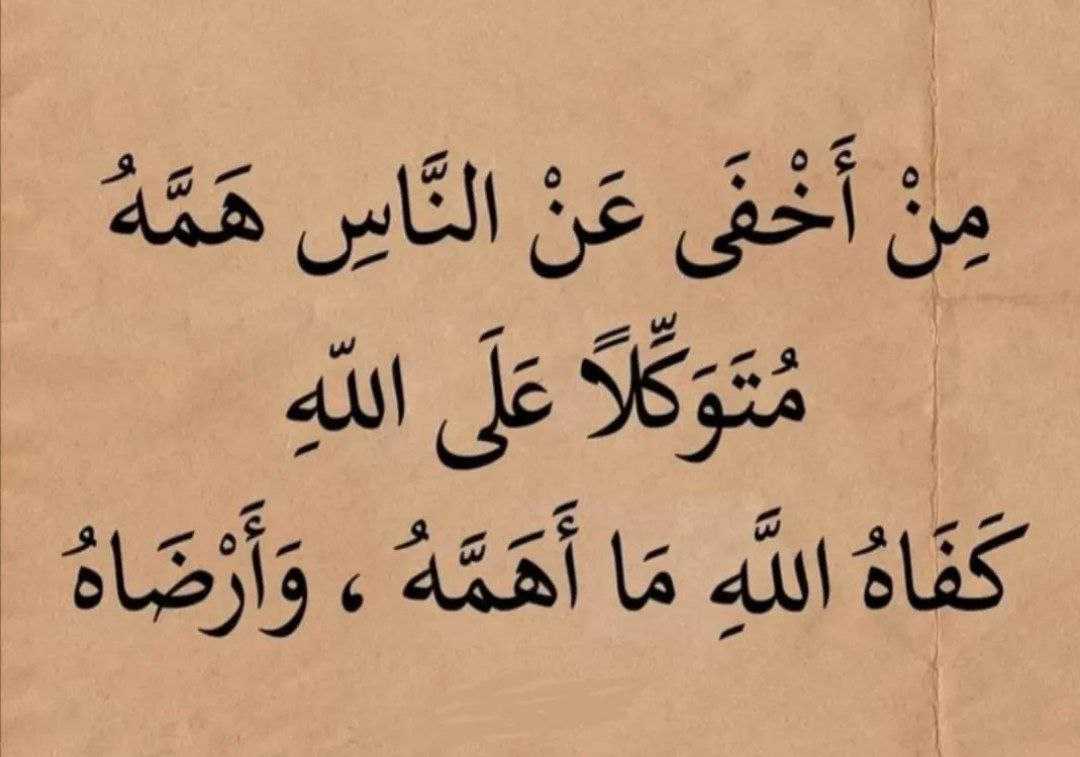 مِنْ أَخْفَى عَنْ النَّاسِ هَمَّهُ
مُتَوَكِّلاً عَلَى اللّهِ
كَفَاهُ اللَّهِ مَا أَهَمَّهُ ، وَأَرْضَاهُ